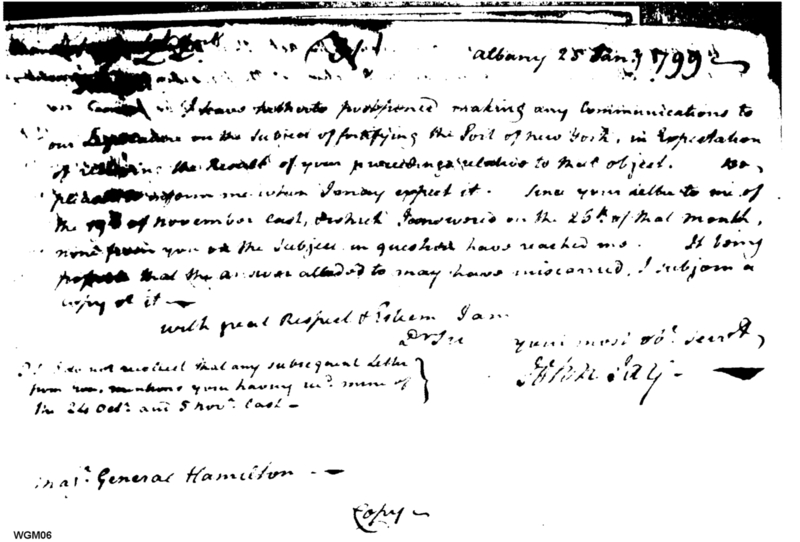 Albany 25 Jan.y 1799
I have hitherto postponed making any Communications to
our Legislature on the subject of fortifying the Port of New York, in Expectation
of receiving the Result of your proceedings relative to that object. Be
pleased to inform me when I may expect it. Since your Letter to me of
the 19th of November last, & which I answered on the 26th of that month,
none from you on the subject in question have reached me. It being
that the answer alluded to may have miscarried, I subjoin a
copy of it —
with great Respect & Esteem I am
Dr Sir your most obt. servt.
John Jay —
P.S. I do not recollect that any subsequent Letter
from you, mentions your having recd. mine of
the 24 Octr. and 5 Novr. last —
Majr. General Hamilton —
Copy
WGM06